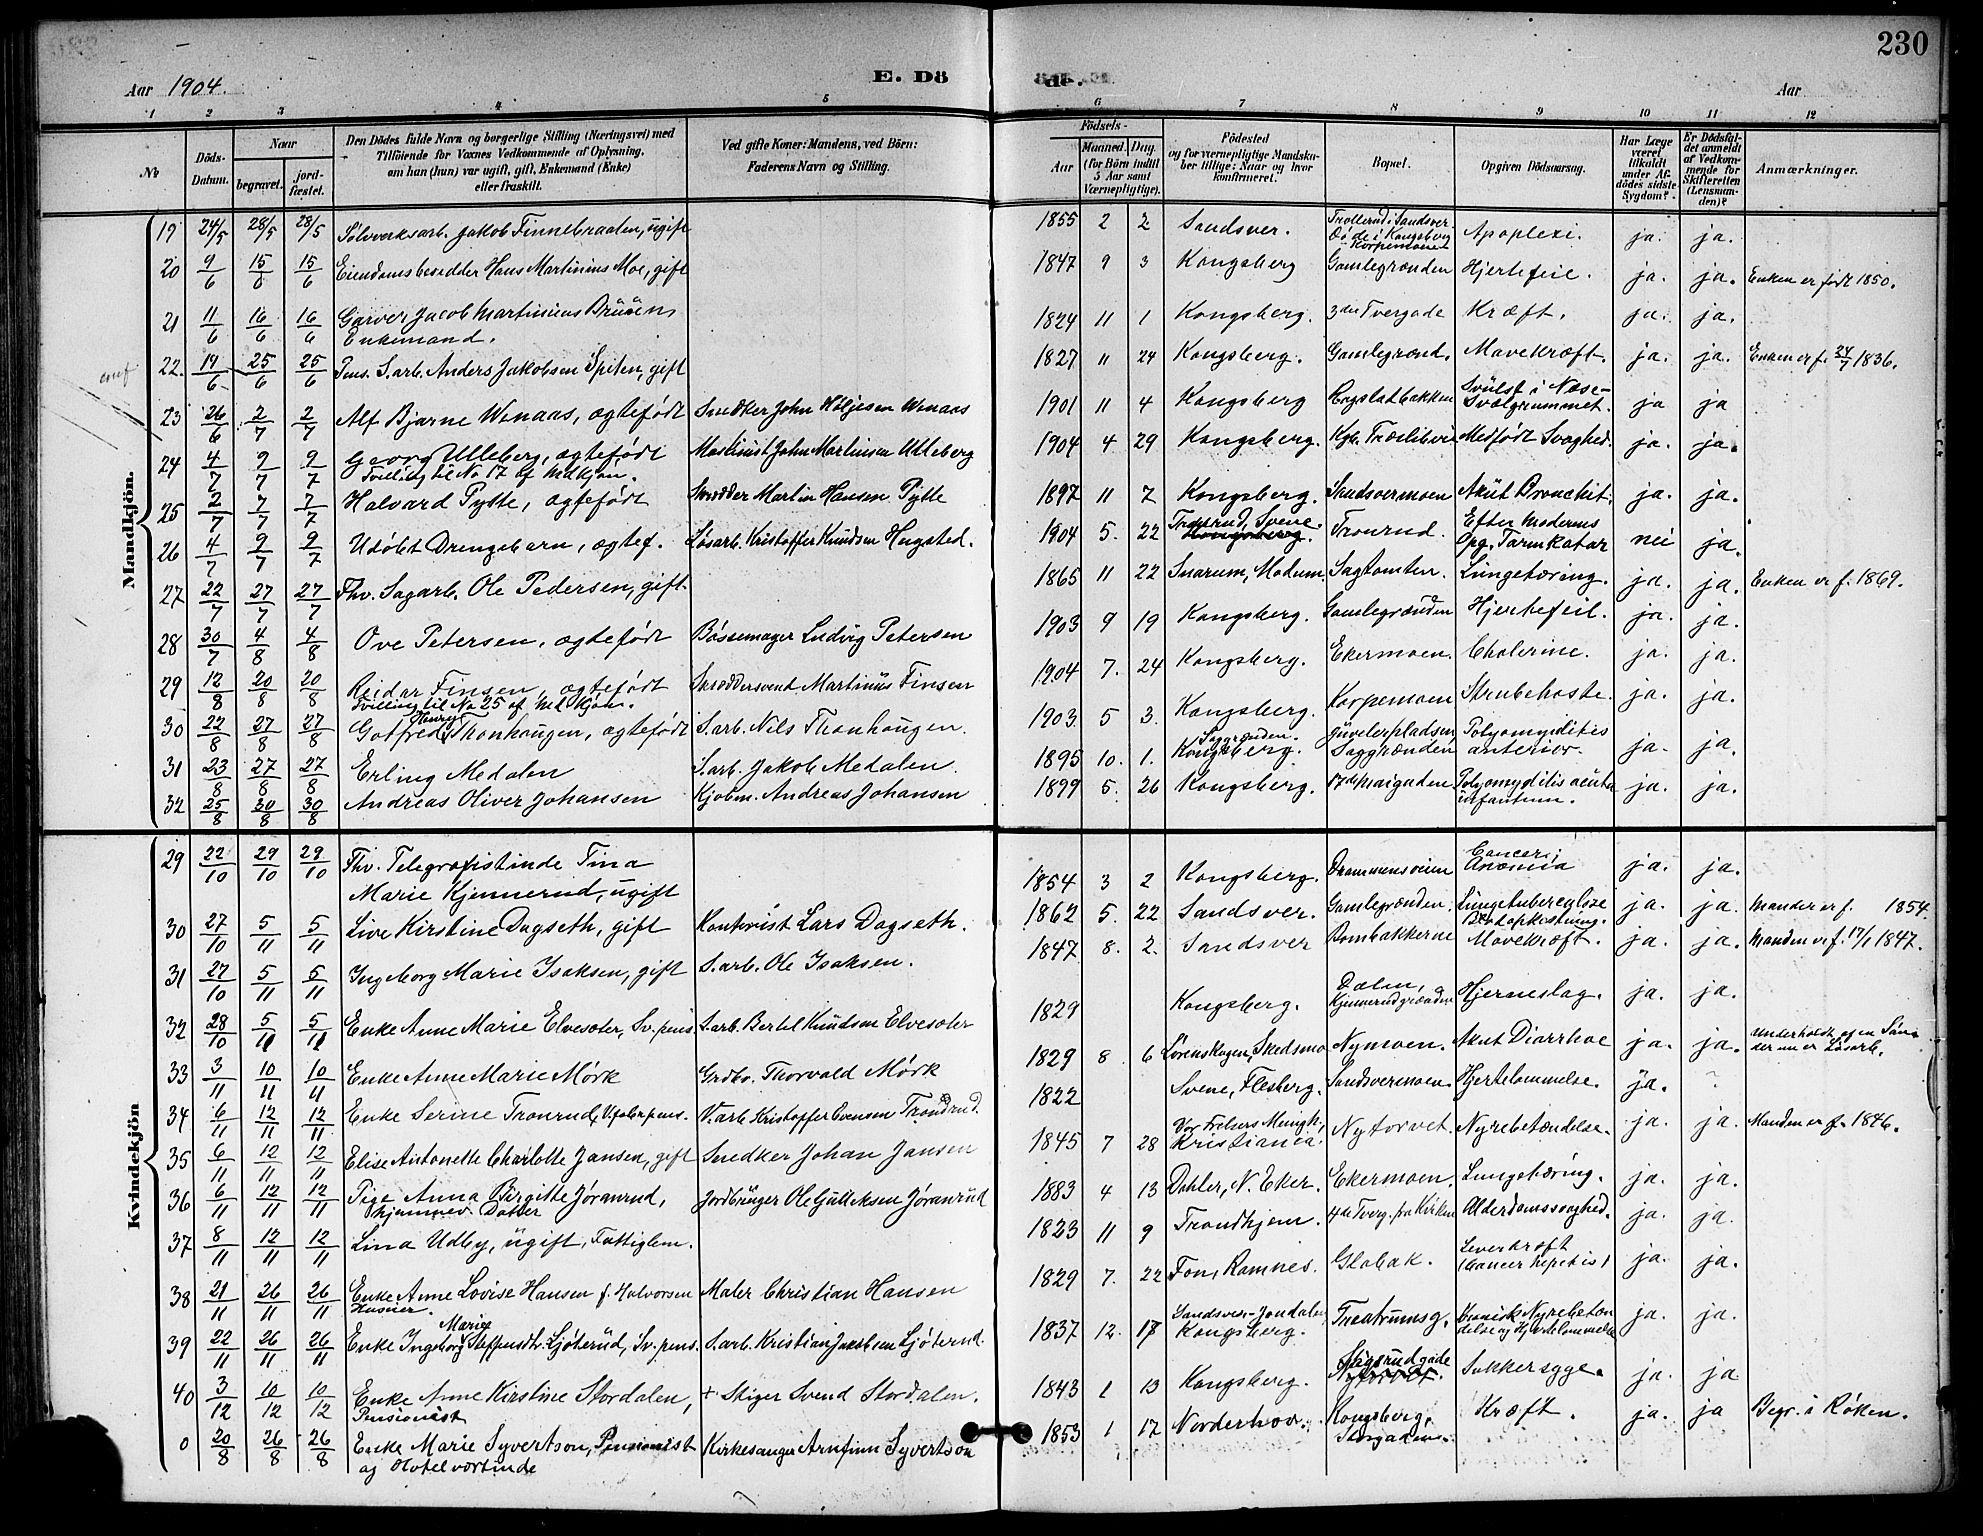 230
Aar 1904.
E. Dö
de.
Aar
1 2 3 4 5 6 7 8 9 10 11 12
No
Döds-Datum.
Naar
begravet.
jord-fæstet.
Den Dödes fulde Navn og borgerlige Stilling (Næringsvei) med
Tilföiende for Voxnes Vedkommende af Oplysning,
om han (hun) var ugift, gift, Enkemand (Enke)
eller fraskilt.
Ved gifte Koner: Mandens, ved Börn:
Faderens Navn og Stilling.
Födsels-
Aar
Maaned. Dag.
(for Börn indtil
5 Aar samt
Værnepligtige).
Födested
og for værnepligtige Mandska-
ber tillige: Naar og hvor
konfirmeret.
Bopæl.
Opgiven Dödsaarsag.
Har Læge
været
tilkaldt
under Af-
dödes sidste
Sygdom?
Er Dödsfal-
det anmeldt
af Vedkom-
mende for
Skifteretten
(Lensman-
den)?
Anmærkninger.
Mandkjön.
19 24/5 28/5 28/5 Sølvverksarb. Jakob Finnebraaten, ugift 1855 2 2 Sandsver. Trollerud i Sandsver. Døde i Kongsberg i Korpemoen Apoplexi. ja. ja.
20 9/6 15/6 15/6 Eiendomsbesidder Hans Martinius Moe, gift 1847 9 3 Kongsberg Gamlegrænden Hjertefeil. ja. ja. Enken er født 1850.
21 11/6 16/6 16/6 Garver Jacob Martinius Brüün
Enkemand. 1824 11 1 Kongsberg. 3die Tvergade Kræft. ja. ja.
22. 19/6 25/6 25/6 Pens. S. arb. Anders Jakobsen Spiten, gift 1827 11 24 Kongsberg. Gamlegrænd. Mavekræft. ja. ja. Enken er f. 24/7 1836.
23 26/6 2/7 2/7 Alf Bjarne Wenaas, ægtefødt Snedker John Holjesen Wenaas 1901 11 4 Kongsberg Svulst i Næse-
Svælgrummet. ja ja
24 4/7 9/7 9/7 Georg Ulleberg, ægtefødt
Tvilling til No 17 af Mdkjøn. Maskinist John Martinsen Ulleberg 1904 4 29 Kongsberg. Kgb. Træsliberi Medfødt Svaghed. ja. ja.
25 2/7 7/7 7/7 Halvard Pytte, ægtefødt Skrædder Martin Hansen Pytte 1897 11 7 Kongsberg. Sandsvermoen Akut Bronchit. ja. ja.
26 4/7 9/7 9/7 Udøbt Drengebarn, ægtef. Løsarb. Kristoffer Knudsen Hugsted. 1904 5. 22 Tronrud, Svene. Kongsberg. Tronrud. Efter Moderens
Opg. Tarmkatar nei ja.
27 22/7 27/7 27/7 Fhv. Sagarb. Ole Pedersen, gift. 1865 11 22 Snarum, Modum Sagtomten. Lungetæring. ja. ja. Enken er f. 1869.
28 30/7 4/8 4/8 Ove Petersen, ægtefødt Bøssemager Ludvig Petersen 1903 9 19 Kongsberg. Gamlegrænden Hjertefeil. ja. ja.
29 12/8 20/8 20/8 Reidar Finsen, ægtefødt
Tvilling til No 25 af Mdkjøn. Skræddersvent Martinius Finsen 1904 7. 24 Kongsberg. Ekermoen. Cholerine. ja. ja.
30 22/8 27/8 27/8 Gotfred Henry Thonhaugen, ægtefødt S. arb. Nils Thonhaugen. 1903. 5 3. Kongsberg. Korpemoen Strubehoste. ja. ja.
31 23/8 27/8 27/8 Erling Medalen S. arb. Jakob Medalen. 1895 10. 1. Saggrænden. Kongsberg. Saggrænden Polyomyelitis
anterior. ja. ja.
32 25/8 30/8 30/8 Andreas Oliver Johansen Kjøbm. Andreas Johansen 1899 5. 26 Kongsberg. 17de Maigaden Polyomyelitis acuta
infantum. ja. ja.
Kvindekjön
29 22/10 29/10 29/10 Fhv. Telegrafistinde Tina
Marie Kjennerud, ugift 1854 3 2 Kongsberg. Drammensveien Cancer;
Anæmia ja. ja.
30 27/10 5/11 5/11 Live Kirstine Dagseth, gift Kontorist Lars Dagseth. 1862 5. 22 Sandsver. Gamlegrænden. Lungetuberculose
Blodopkastning. ja. ja. Manden er f. 1854.
31 27/10 5/11 5/11 Ingeborg Marie Isaksen, gift S. arb. Ole Isaksen. 1847 8. 2. Sandsver Bombakkerne Mavekræft. ja. ja. Manden er f. 17/1 1847.
32 28/10 5/11 5/11 Enke Anne Marie Elvesæter, Sv. pens. S. arb. Bertel Knudsen Elvesæter 1829 Kongsberg. Dalen,
Kjennerudgrænden Hjerneslag. ja. ja.
33 3/11 10/11 10/11 Enke Anne Marie Mørk Grdbr. Thorvald Mørk 1829 8. 6 Lørenskogen, Skedsmo Nymoen. Akut Diarrhoe ja. ja. Underholdt af en Søn
der nu er Løsarb.
34 6/11 12/11 12/11 Enke Serine Tronrud, V. fab. pens. V. arb. Kristoffer Evensen Trondrud. 1822 Svene, Flesberg. Sandsvermoen. Hjertelammelse. ja.
35 6/11 12/11 12/11 Elise Antonette Charlotte Jansen, gift Snedker Johan Jansen 1845 7 28 Vor Frelsers Menigh.,
Kristiania. Nytorvet. Nyrebetændelse. ja. ja. Manden er f. 1846.
36 6/11 12/11 12/11 Pige Anna Birgitte Jøranrud,
hjemmev. Datter Jordbruger Ole Gulleksen Jøranrud 1883 4 13 Dahler, N. Eker. Ekermoen. Lungetæring. ja. ja.
37 8/11 12/11 12/11 Lina Udby, ugift, Fattiglem. 1823 11 9 Trondhjem. 4de Tverg. fra Kirken Alderdomssvaghed. ja. ja.
38 21/11 26/11 26/11 Enke Anne Lovise Hansen f. Halvorsen Maler Christian Hansen 1829 7. 22 Fon, Ramnes. Glabak. Leverkræft
(Cancer hepatis) ja. ja.
39 22/11 26/11 26/11 Enke Ingeborg Marie Steffensdtr. Ljøterud, Sv. pens. S. arb. Kristian Jakobsen Ljøterud. 1837 12. 17 Sandsver-Jondalen,
Kongsberg. Theatrumsg. Kronisk Nyrebetæn
delse og Hjertelammelse ja. ja.
40 3/12 10/12 10/12 Enke Anne Kirstine Stordalen,
Pensionist + Stiger Svend Stordalen. 1843 1 13 Kongsberg. Nytorvet. Sukkersyge. ja. ja
0 20/8 26/8 26/8 Enke Marie Syvertson, Pensionist
og Hotelværtinde Kirkesanger Arnfinn Syvertson 1853 1 17 Norderhov. Kongsberg,
Storgaden. Kræft. ja. ja Begr. i Røken.